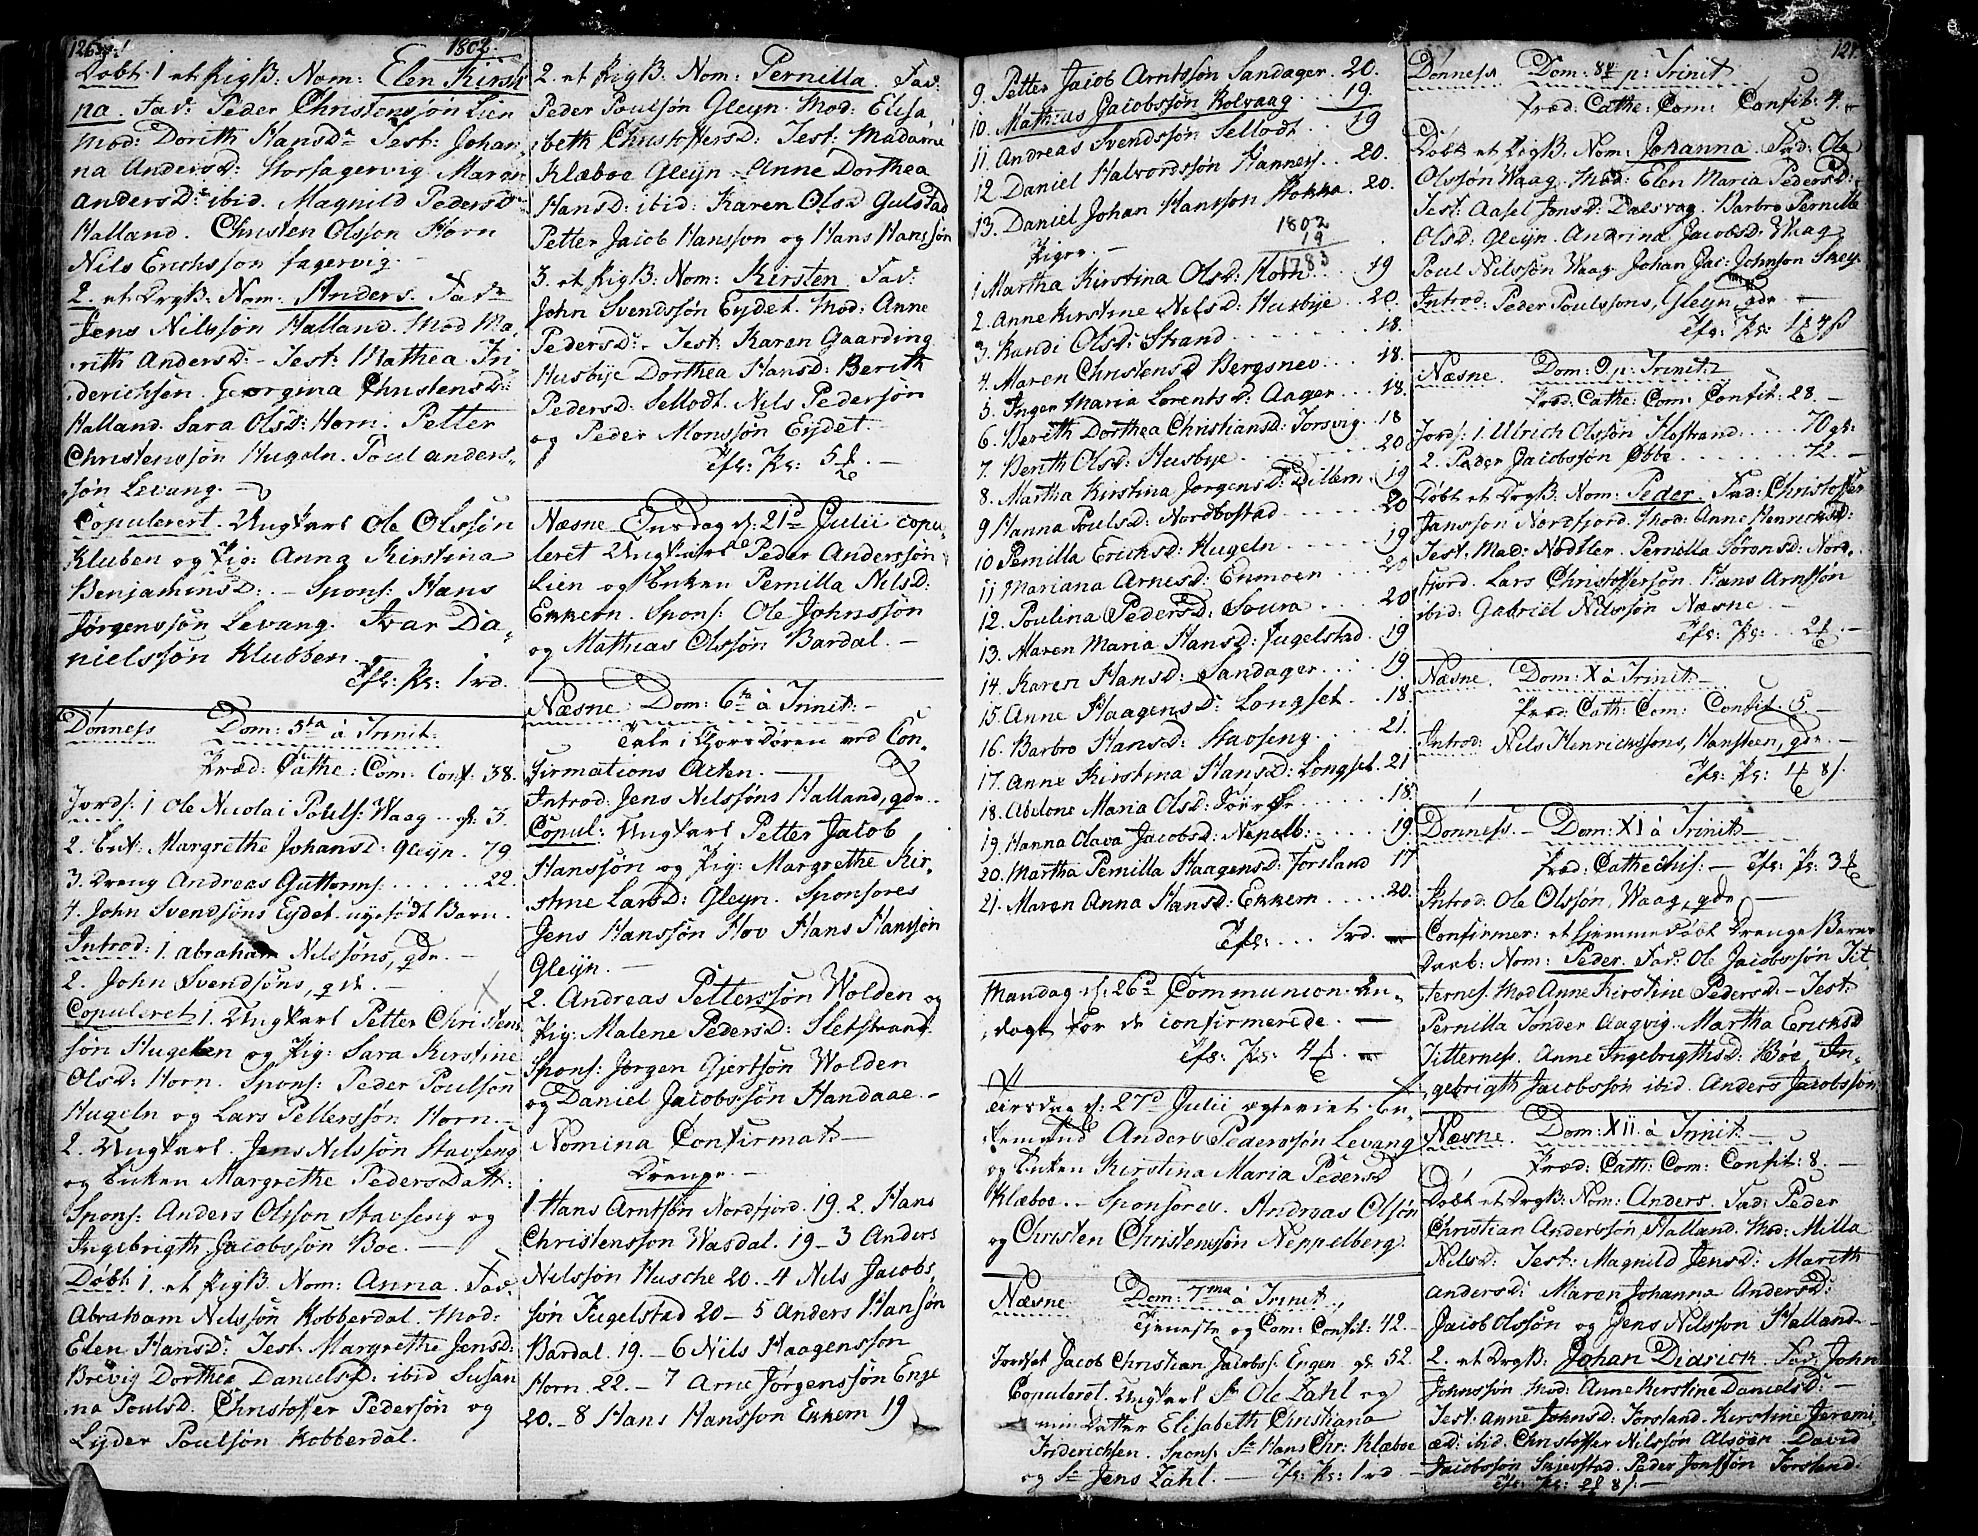 126.
1802.
Døbt 1 et PigB: Nom: Elen Kirsti
na. Fad: Peder Christenssøn Lien
Mod: Dorith Hansd. Test: Johan
na Andersd: Storfagervig Maren
Andersd: ibid. Magnild Pedersd
Halland. Christen Olsson Horn
Nils Ericksson fagervig.
2. et DrgB: Nom: Anders. Fad
Jens Nilssøn Halland. Mod Ma
rith Andersd: Test: Mathea Fri
derichsen. Georgina Christensd:
Halland. Sara Olsd: Horn. Petter
Christenssøn Hugeln. Poul anders
søn Levang.
Copulerert. Ungkarl Ole Olssøn
Kluben og Pig: Anna Kirstina
Benjaminsd: Spons: Hans
Jørgenssøn Levang. Ivar Da
nielssøn Klubben.
Tfl: Ps: 1 rd.
Dønness Dom: 5ta à Trinit:
Præd: Cathe: Com. Conf: 38.
Jords: 1 Ole Nicolai Pouls: Waag 3.
2. Margrethe Johansd: Gleyn. 79
3. Dreng Andreas Guttorms. 22.
4. John Svendsøns Eydet. nyefødt Barn.
Introd: 1. abraham Nilssøns, qde.
2. John Svendsøns, qde.
Copuleret 1. Ungkarl Petter Christens
søn Hugelen og Pig: Sara Kirstine
Olsd: Horn. Spons: Peder Poulsøn
Hugeln og Lars Pettersson Horn.
2. Ungkarl Jens Nilssøn Stavseng
og Enken Margrethe Peders Datt:
Spons: Anders Olsson Stavseng og
Ingebrigth Jacobssøn Boe.
Døbt 1. et PigB. Nom: Anna. Fad:
Abraham Nilssøn Kobberdal. Mod:
Elen Hansd: Test. Margrethe Jensd:
Brevig Dorthea Danielsd: ibid Susan
na Poulsd. Christoffer Pedersøn og
Lyder Poulsøn Kobberdal.
2. et PigB: Nom: Pernilla. Fad:
Peder Poulsøn Gleyn. Mod: Elisa
beth Christoffersd: Test: Madame
Klæboe Gleyn. Anne Dorthea
Hansd: ibid: Karen Olsd Gulstad
Petter Jacob Hansson og Hans Hanssøn
3. et PigB: Nom: Kirsten Fad:
John Svendssøn Eydet. Mod: Anne
Pedersd: Test: Karen Gaarding
Husbye Dorthea Hansd: Berith
Pedersd. Sellodt. Nils Pedersøn
og Peder Monssøn Eydet
Tfl: Ps: 5
Næsne Onsdag d: 21d Julii copu
leret Ungkarl Peder Anderssøn
Lien og Enken Pernilla Nilsd:
Ekkern. Spons: Ole Johnssøn
og Mathias Olssøn Bardal.
Næsne. Dom: 6te à Trinit:
Tale i Chordøren ved Con
firmations Acten.
Introd: Jens Nilssøns Halland, qde.
Copul: Ungkarl Petter Jacob
Hanssøn og Pig: Margrethe Kir
stine Larsd: Gleyn. Sponsores
Jens Hanssøn Hov Hans Hanssøn
Gleyn.
2. Andreas Petterssøn Wolden og
Pig: Malene Pedersd: Sletstrand.
Spons: Jørgen Gjertsøn Wolden
og Daniel Jacobssøn Handaae.
Nomina Confirmat:
Drenge.
1 Hans Arntsøn Nordfjord. 19. 2. Hans
Christensson Wasdal. 19 - 3 Anders
Nilssøn Husche 20. - 4 Nils Jacobs
søn Fugelstad 20 - 5 Anders Hansøn
Bardal. 19. - 6 Nils Haagensson
Horn. 22. - 7 Arne Jørgenssøn Enge
20. - 8 Hans Hansson Ekkern 19
9. Petter Jacob Arntssøn Sandager. 20.
10. Mathias Jacobssøn Kolvaag. 19.
11. Andreas Svendssøn Sellodt. 19
12 Daniel Halvordssøn Hannes. 20.
13. Daniel Johan Hansson Stokka. 20.
1802
19
1783
Piger.
1 Martha Kirstina Olsd: Horn. 19
2. Anne Kirstine Nilsd: Husbye. 20.
3. Randi Olsd: Strand 18.
4. Maren Christensd Bergsnev. 18.
5. Inger Maria Lorentsd: Aager. 18.
6. Berith Dorthea Christiansd: Forsvig. 18
7. Berith Olsd: Husbye. 20
8. Martha Kirstina Jørgensd: Dillern. 19
9 Hanna Poulsd: Nordbostad 20
10 Pernilla Ericksd: Hugeln 19
11 Mariana Arnesd: Enmoen 20
12. Poulina Pedersd: Soura 20
13. Maren Maria Hansd: Fugelstad. 19
14. Karen Hansd: Sandager. 19
15. Anne Haagensd: Longset. 18.
16. Barbro Hansd: Stavseng. 21.
17. Anne Kirstina Hansd: Longset. 21
18. Abelone Maria Olsd: 18.
19. Hanna Olava Jacobsd: Nepelb: 19.
20. Martha Pernilla Haagensd: Forsland 17
21. Maren Anna Hansd: Ekkern 20.
Tfl: 1 rd.
Mandag d: 26d Communion
for de confirmerede.
Tfl: Ps: 4
Tirsdag d: 27d Julii egteviet En
kemand Anders Pederssøn Levang
og Enken Kirstina Maria Pedersd
Klæboe. Sponsores. Andreas Olsøn
og Christen Christenssøn Neppelberg.
Næsne Dom: 7ma à Trinit:
Tjeneste og Com: Confit: 42.
Jordfæt Jacob Christian Jacobs: Engen 52.
Copuleret. Ungkarl Sr Ole Zahl og
min Datter Elisabeth Christiana
Friderichsen. Spons: Sr Hans Chr: Klæboe
og Sr Jens Zahl. Tfl: Ps: 1 rd
127.
Dønness Dom: 8v p: Trinit
Præd: Cathe: Com: Confit: 4.
Døbt et PigB. Nom: Johanna. Fad: Ole
Olssøn Waag. Mod: Elen Maria Pedersd:
Test: Aasel Jonsd: Dalsvag. Barbro Pernille
Olsd: Gleyn. Andrina Jacobsd: Waag
Poul Nilssøn Waag Johan Jac: Johnson Skey.
Introd: Peder Poulssons, Gleyn, qde
Tfl: Ps: 1 4 ß
Næsne. Dom: 9. p: Trinit:
Præd: Cathe: Com: Confit: 28.
Jords: 1. Ulrich Olssøn Flostrand 70
2. Peder Jacobssøn Øbbe 72.
Døbt et DrgB. Nom: Peder. Fad: Christoffer
Hansson Nordfjord. Mod: Anne Henricksd:
Test: Mad: Nodtler. Pernilla Sørensd: Nord
fjord. Lars Christoffersøn. Hans Arntsøn
ibid: Gabriel Nilssøn Næsne.
Tfl: Ps: 2
Næsne. Dom: X à Trinit:
Præd: Cath: Com: Confit: 5.
Introd: Nils Henrickssons, Hansteen, qde.
Tfl: Ps: 1 8 s.
Dønness. Dom: XI à Trinit:
Præd: Cathechis: Tfl: Ps: 3
Introd: Ole Olssøn, Waag, qde
Confirmer: et hjemmedøbt Drenge Barns
Daab: Nom: Peder. Fad: Ole Jacobssøn Tit
ternes. Mod Anne Kirstine Pedersd. Test:
Pernilla Tønder Aagvig. Martha Ericksd
Titterness. Anne Ingebrigthsd: Bøe, In
gebrigth Jacobssøn ibid. Anders Jacobssøn
Næsne. Dom: XII. à Trinit:
Præd: Cath: Com: Confit: 8.
Døbt et DrgB: Nom: Anders. Fad: Peder
Christian Anderssøn Halland. Mod: Milla
Nilsd: Test: Magnild Jensd: Marith
Andersd: Maren Johanna Andersd:
Jacob Olssøn og Jens Nilsson Halland.
2. et DrgB: Johan Didrick. Fad: John
Johnssøn Mod: Anne Kirstine Danielsd:
Test: Anne Johnsd: Forsland. Kirstine Jeremi
æd: ibid. Christoffer Nilssøn Alsøen David
Jacobssøn Skjevstad. Peder Jonssøn Forsland.
Tfl: Ps: 2 8 s.